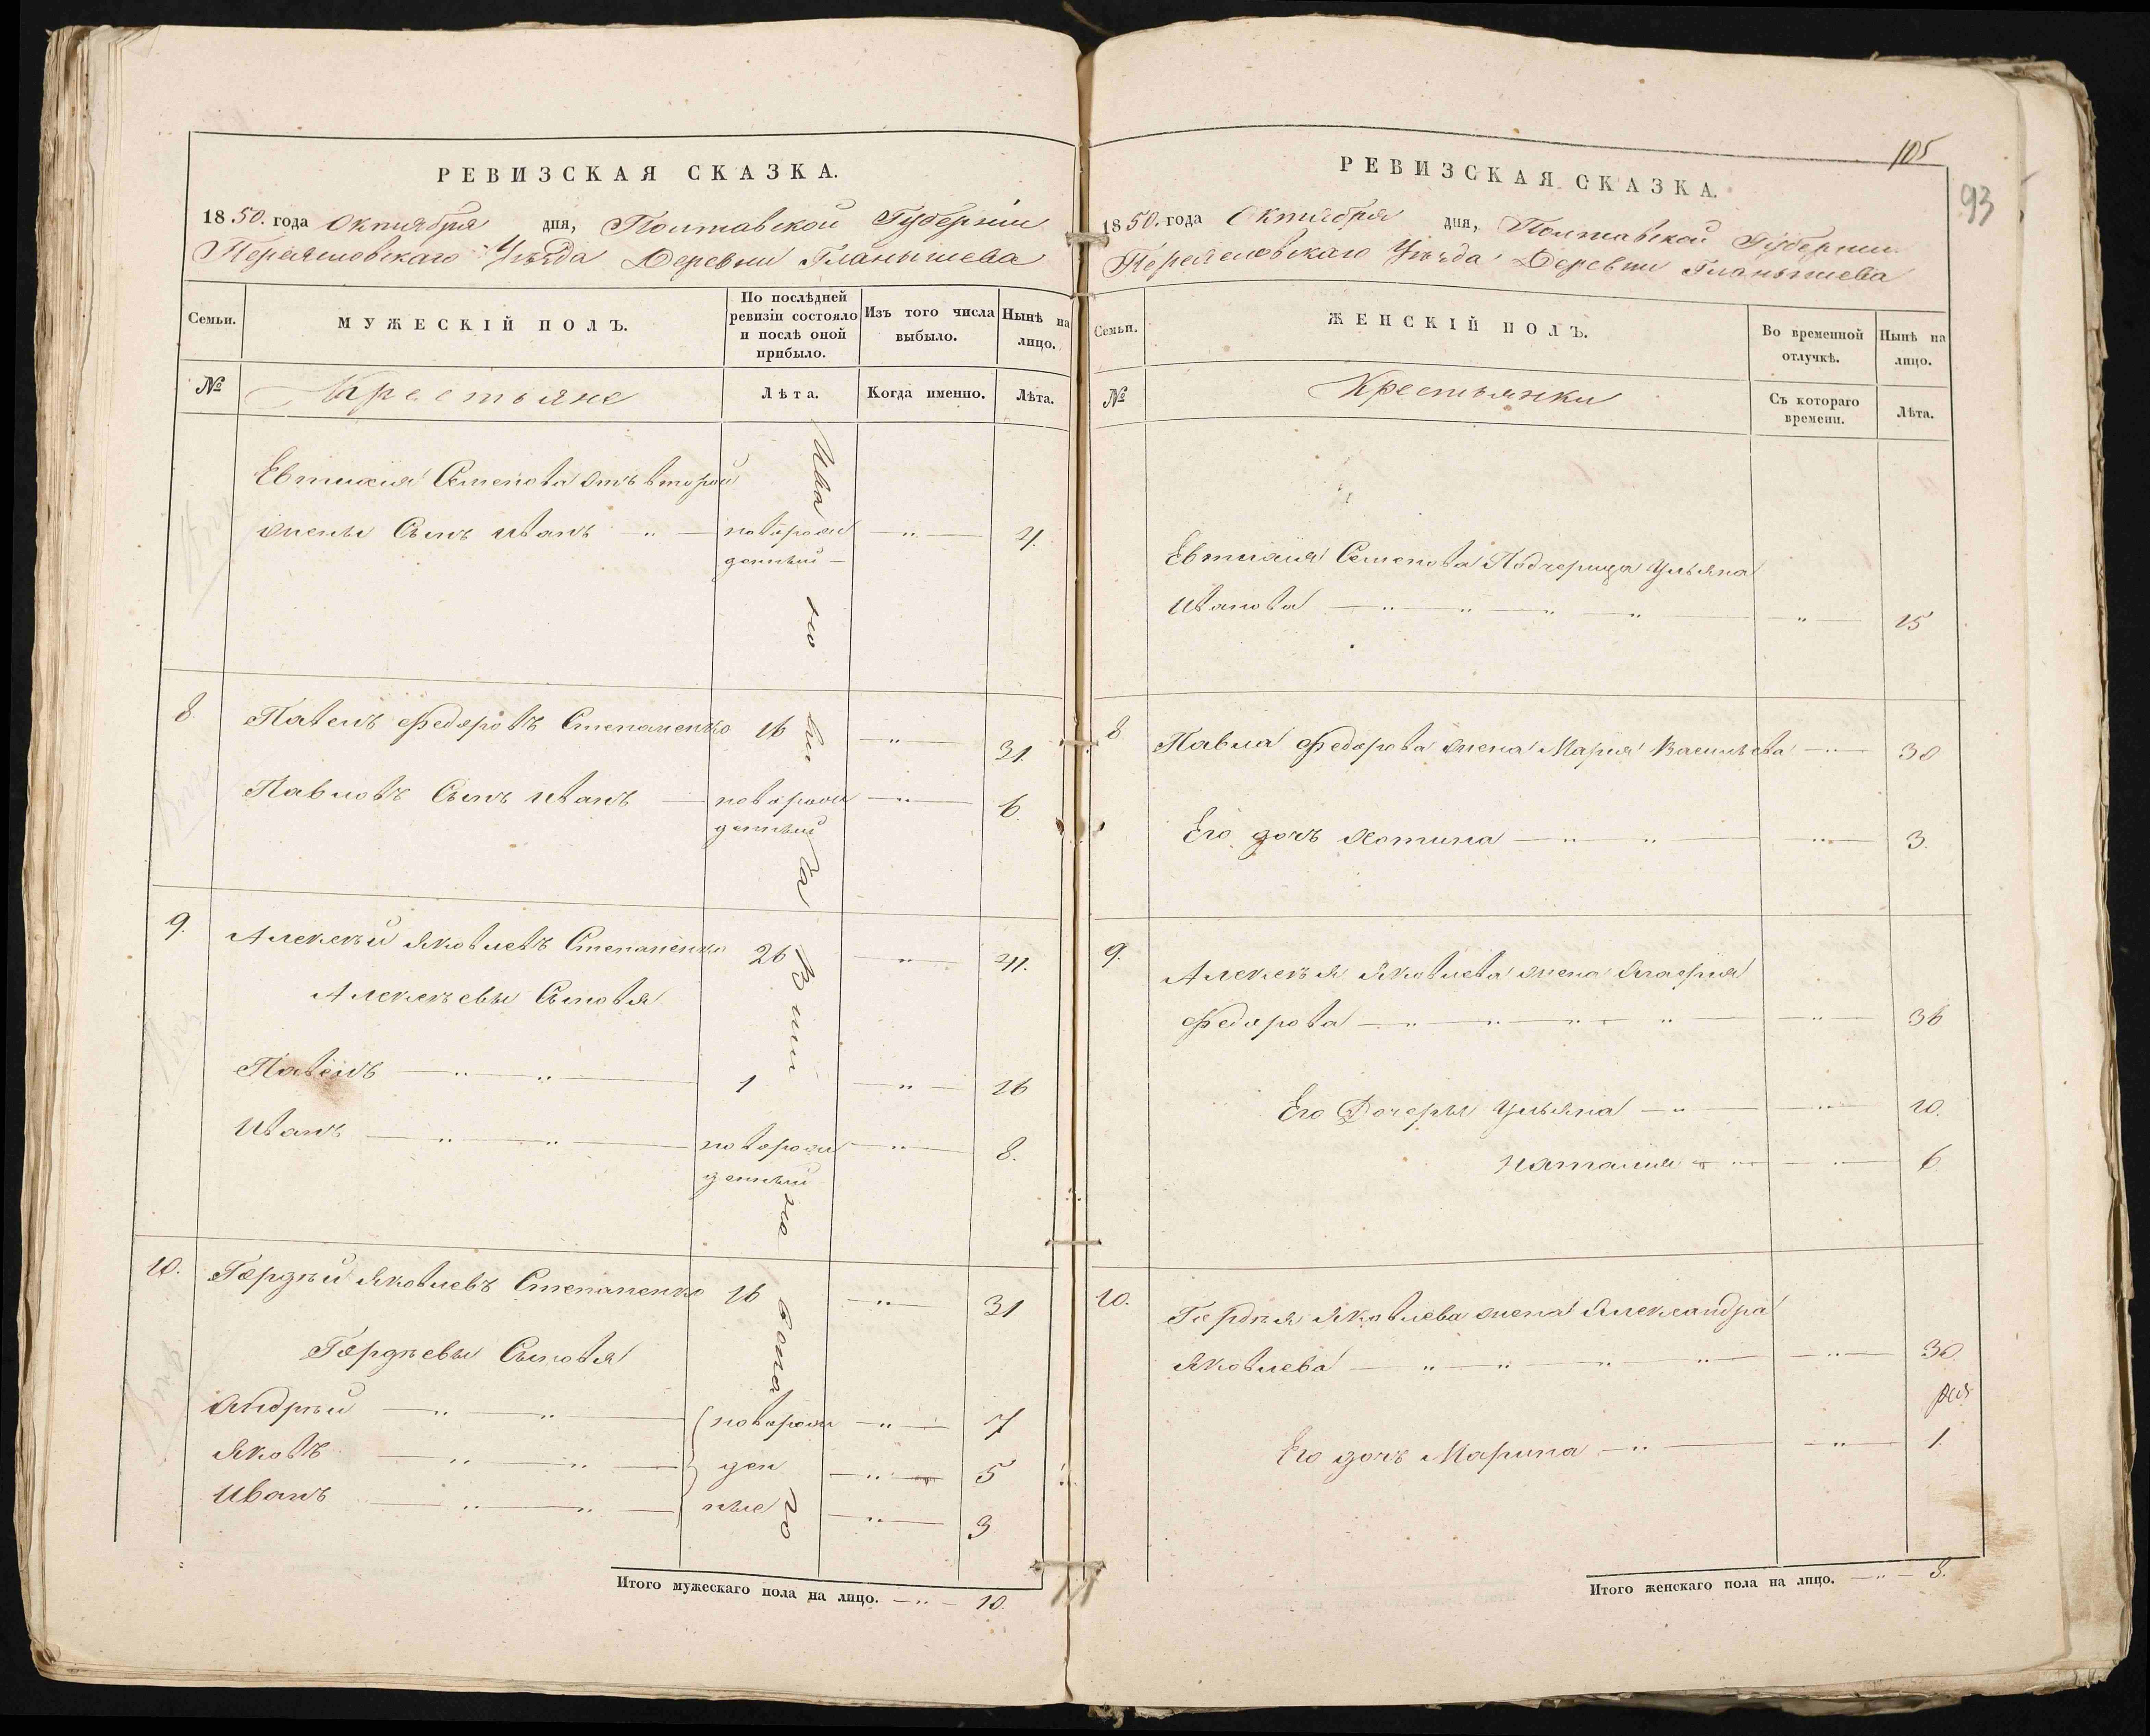 РЕВИЗСКАЯ СКАЗКА.
1850. года Октября дня, Полтавской Губерніи
Переяславскаго Уѣзда Деревни Гланышева
Семьи.
МУЖЕСКІЙ ПОЛЪ.
По послѣдней ревизіи состояло и послѣ оной прибыло.
Изъ того числа выбыло.
Нынѣ на лицо.
№
Крестьяне
Лѣта.
Когда именно.
Лѣта.
Евтихия Семенова отъ второй
жены Сынъ Иванъ — новорож 4.
денный —
8. Павелъ Федоровъ Степаненко 16 — " — 31.
Павловъ Сынъ Иванъ — новорож — " — 6.
денный
9. Алексѣй Яковлевъ Степаненко 26 — " — 41.
Алексѣевы Сыновья
Павелъ — " — " — 1 — " — 16
Иванъ — " — " — новорож — " — 8.
денный
10. Гордѣй Яковлевъ Степаненко 16 — " — 31
Гордѣевы Сыновья
Андрѣй — " — " — новорож — " — 7
Яковъ — " — " — ден — " — 5
Иванъ — " — " — ные — " — 3
Итого мужескаго пола на лицо. — " — 10.
105
93
РЕВИЗСКАЯ СКАЗКА.
1850. года Октября дня, Полтавской Губерніи
Переяславскаго Уѣзда Деревни Гланышева
Семьи.
ЖЕНСКІЙ ПОЛЪ.
Во временной отлучкѣ.
Нынѣ на лицо.
№
Крестьянки
Съ котораго времени.
Лѣта.
Евтихия Семенова Подчерица Ульяна
Иванова — " — " — " — " — " — 15
8 Павла Федорова жена Мария Васильева — " — 30
Его дочь Хотина — " — " — " — 3.
9. Алексѣя Яковлева жена Агафия
Федорова — " — " — " — " — " — 36
Его Дочери Ульяна — " — " — 10.
Наталия — " — " — 6
10. Гордѣя Яковлева жена Александра
Яковлева — " — " — " — " — " — 30.
Его дочь Марина — " — " — 1.
Итого женскаго пола на лицо. — " — 8.